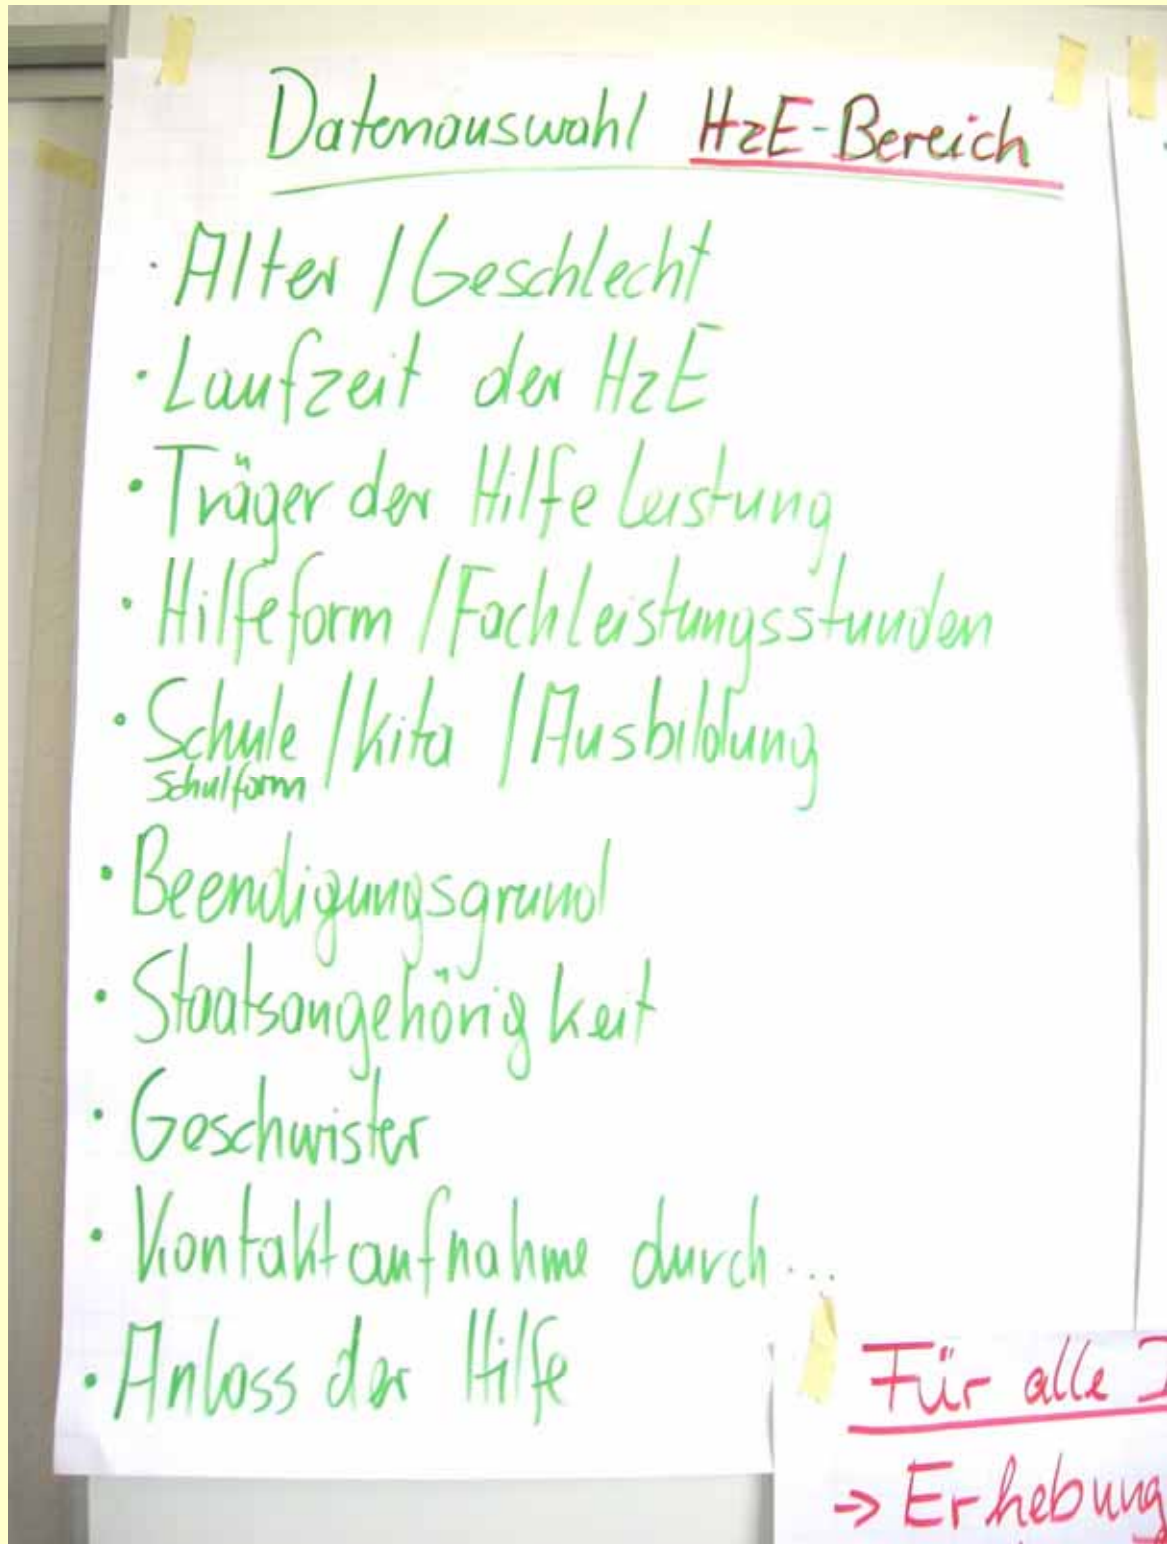 Datenauswahl HzE-Bereich
· Alter / Geschlecht
· Laufzeit der HzE
· Träger der Hilfeleistung
· Hilfeform / Fachleistungsstunden
· Schule / Kita / Ausbildung
Schulform
· Beendigungsgrund
· Staatsangehörigkeit
· Geschwister
· Kontaktaufnahme durch...
· Anlass der Hilfe
Für alle
-> Erhebung